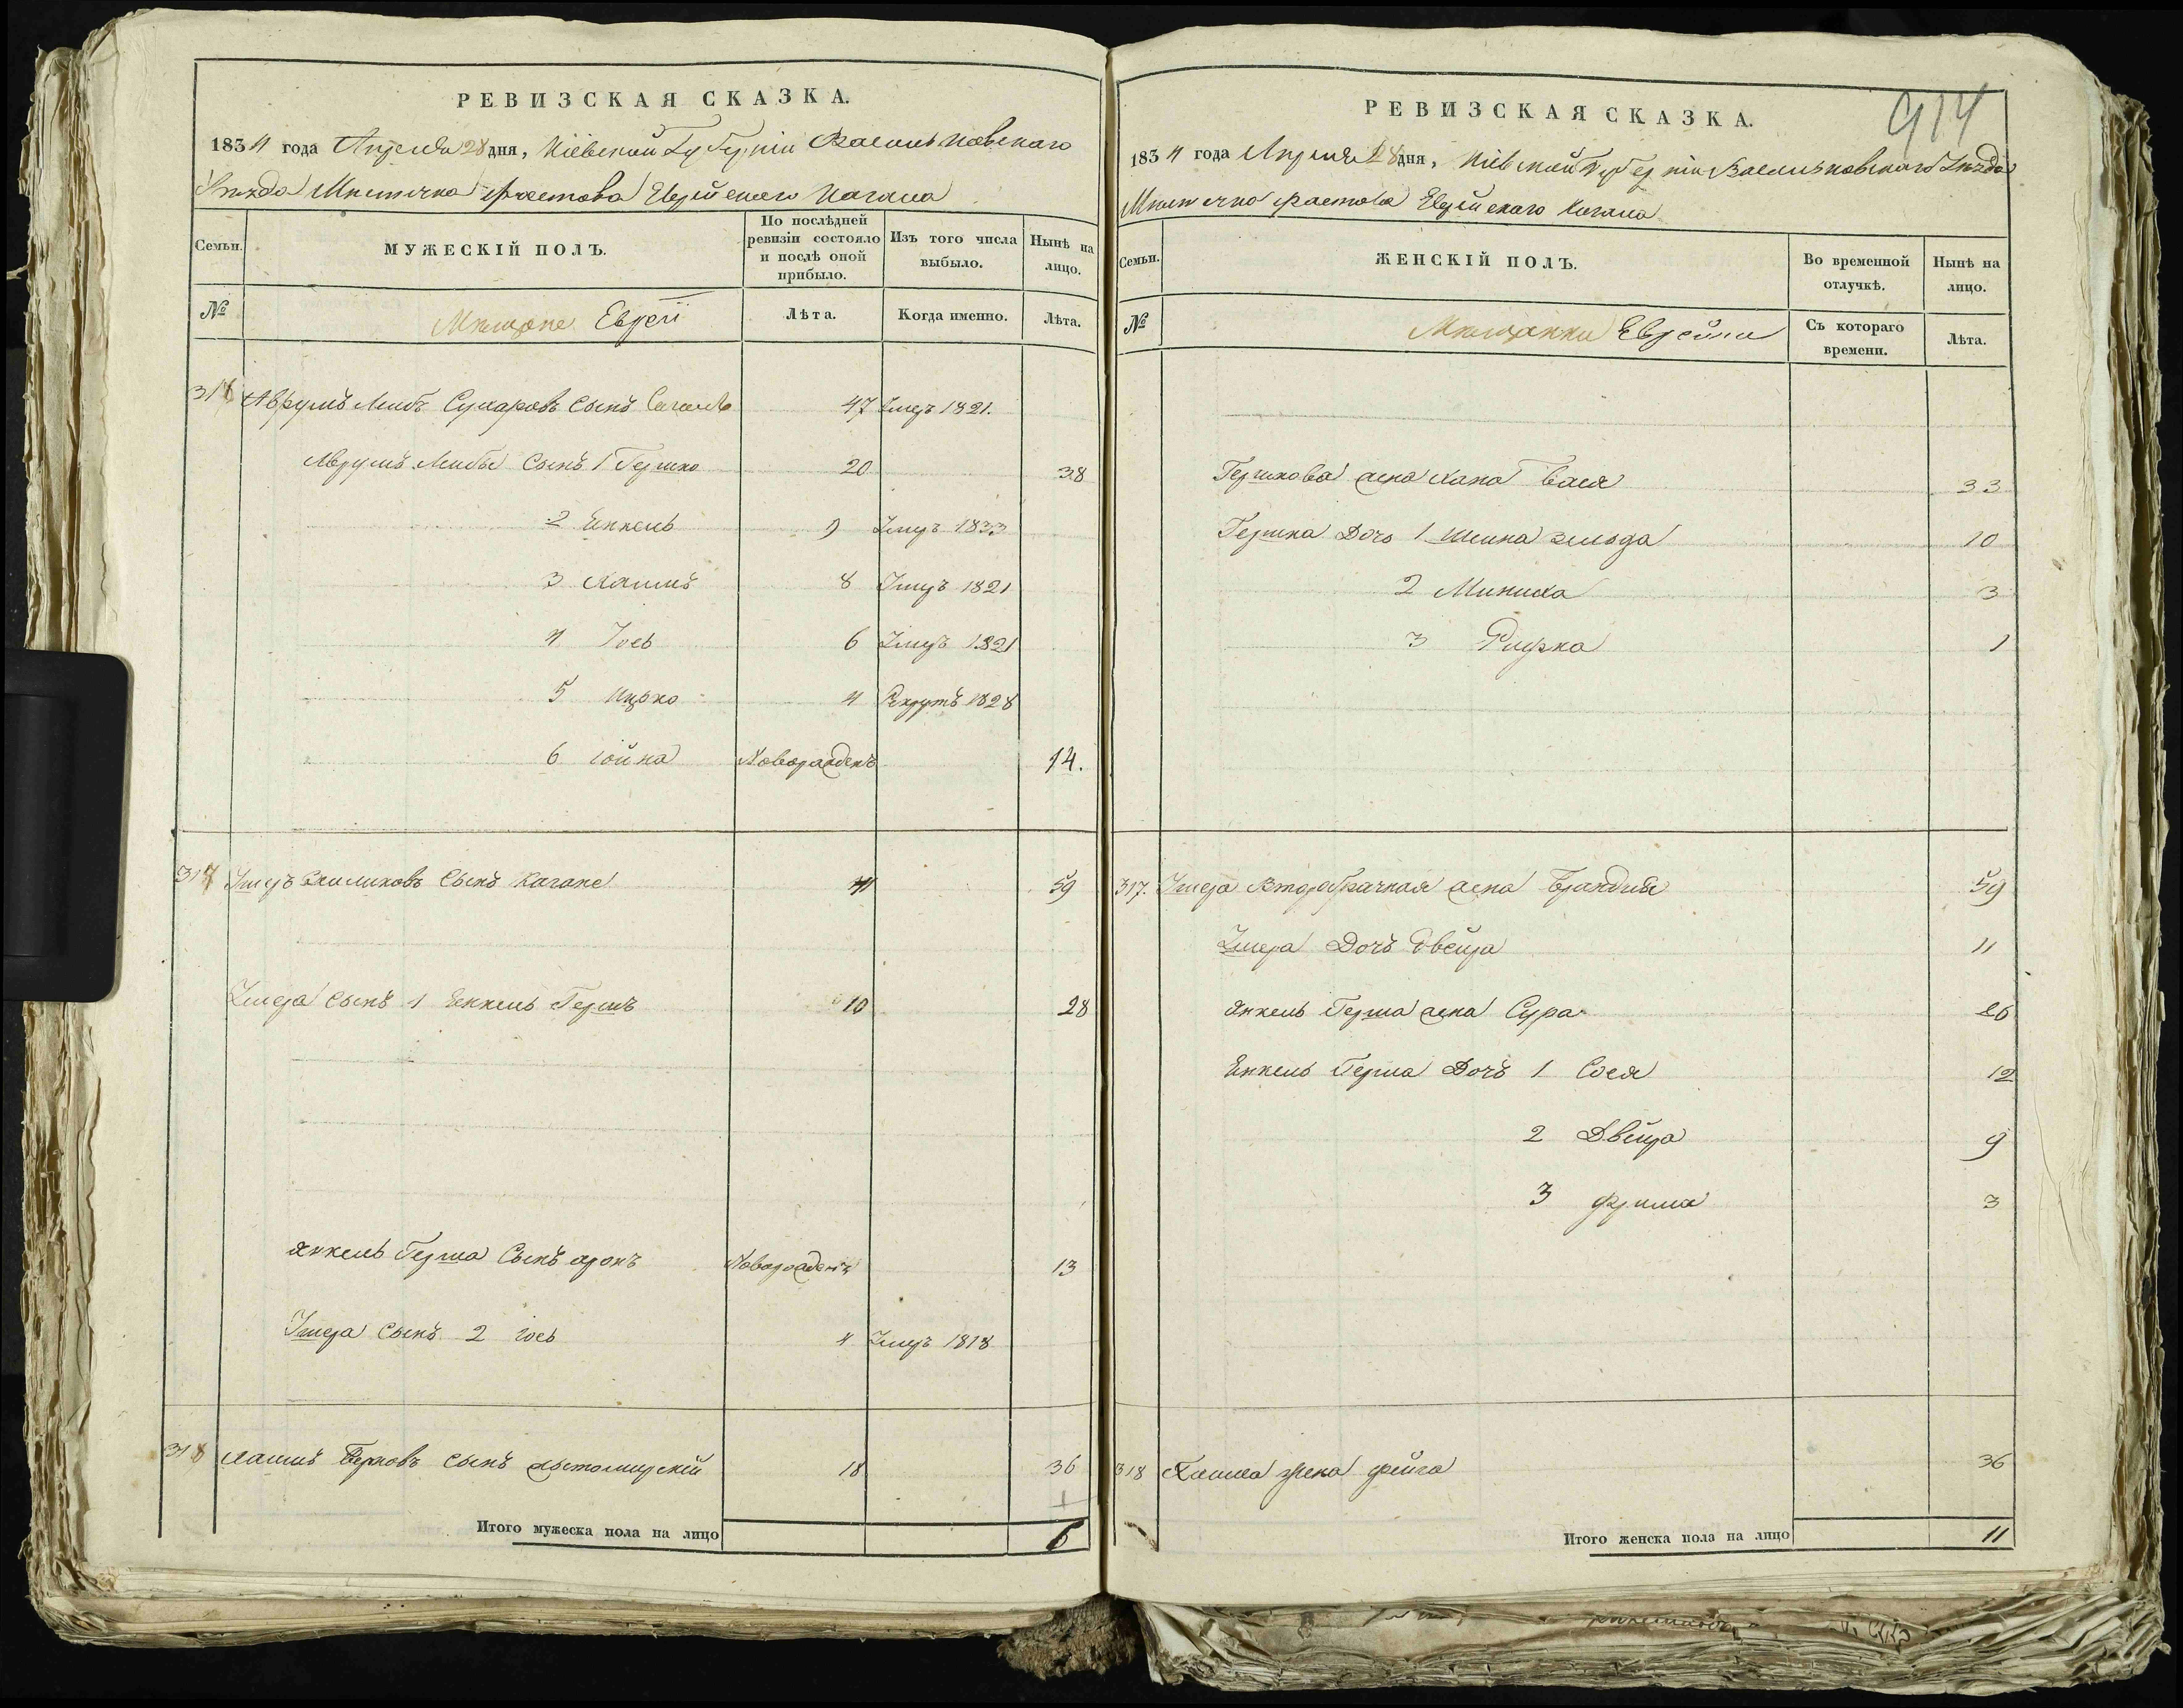 РЕВИЗСКАЯ СКАЗКА.
1834 года Апреля 28 дня, Кіевской Губерніи Васильковскаго
Уѣзда Мѣстечка Фастова Еврейскаго Кагала
Семьи.
МУЖЕСКІЙ ПОЛЪ.
По послѣдней ревизіи состояло и послѣ оной прибыло.
Изъ того числа выбыло.
Нынѣ на лицо.
№
Мещане Евреи
Лѣта.
Когда именно.
Лѣта.
316 Аврумъ Лейбъ Сухаровъ Сынъ 47 Умеръ 1821.
Аврумъ Лейбы Сынъ 1 Гершко 20 38
2 Янкель 9 Умеръ 1833
3 Хаимъ 8 Умеръ 1821
4 Іось 6 Умеръ 1821
5 Ицько 4 Рекрутъ 1828
6 Іойна Новорожденъ 14.
317 Умеръ Сынъ Кагане 41 59
Сынъ 1 Янкель Гершъ 10 28
Янкель Герша Сынъ Аронъ Новорожденъ 13
Сынъ 2 Іось 4 Умеръ 1818
318 Хаимъ Берковъ Сынъ Житомирскій 18 36
Итого мужеска пола на лицо 6
914
РЕВИЗСКАЯ СКАЗКА.
1834 года Апреля 28 дня, Кіевской Губерніи Васильковскаго Уѣзда
Мѣстечка Фастова Еврейскаго Кагала
Семьи.
ЖЕНСКІЙ ПОЛЪ.
Во временной отлучкѣ.
Нынѣ на лицо.
№
Мещанки Еврейки
Съ котораго времени.
Лѣта.
Гершкова жена Хана Бася 33
Гершка Дочь 1 Шейна Зельда 10
2 3
3 Ривка 1
317. Второбрачная жена Брандля 59
Дочь Двейра 11
Янкель Герша жена Сура 26
Янкель Герша Дочь 1 Сося 12
2 Двейра 9
3 Фрима 3
318 Хаима жена Фейга 36
Итого женска пола на лицо 11